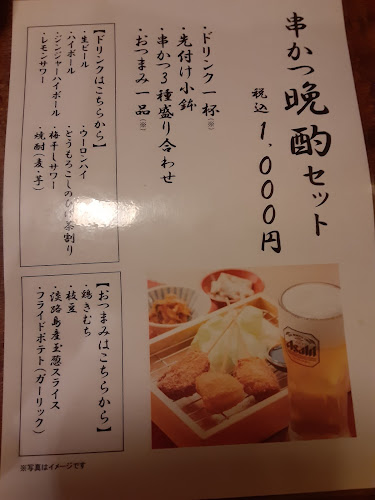 串かつ晩酌セット
税込1,000円
・ドリンク一杯(※)
・先付け小鉢
・串かつ3種盛り合わせ
・おつまみ一品(※)
【ドリンクはこちらから】
・生ビール
・ハイボール
・ジンジャーハイボール
・レモンサワー
・ウーロンハイ
・とうもろこしのひげ茶割り
・梅干しサワー
・焼酎(麦・芋)
【おつまみはこちらから】
・鶏きむち
・枝豆
・淡路島産玉葱スライス
・フライドポテト(ガーリック)
Asahi
※写真はイメージです